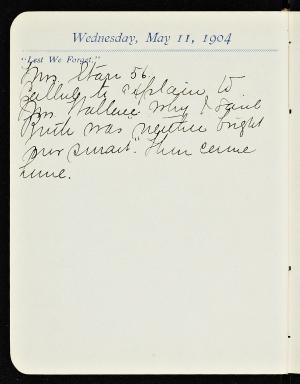 Wednesday, May 11, 1904
"Lest We Forget."
Mrs. Starr 56.
Called to explain to
Mrs. Wallace why I said
Bruce was "neither bright
nor smart." Then came
home.